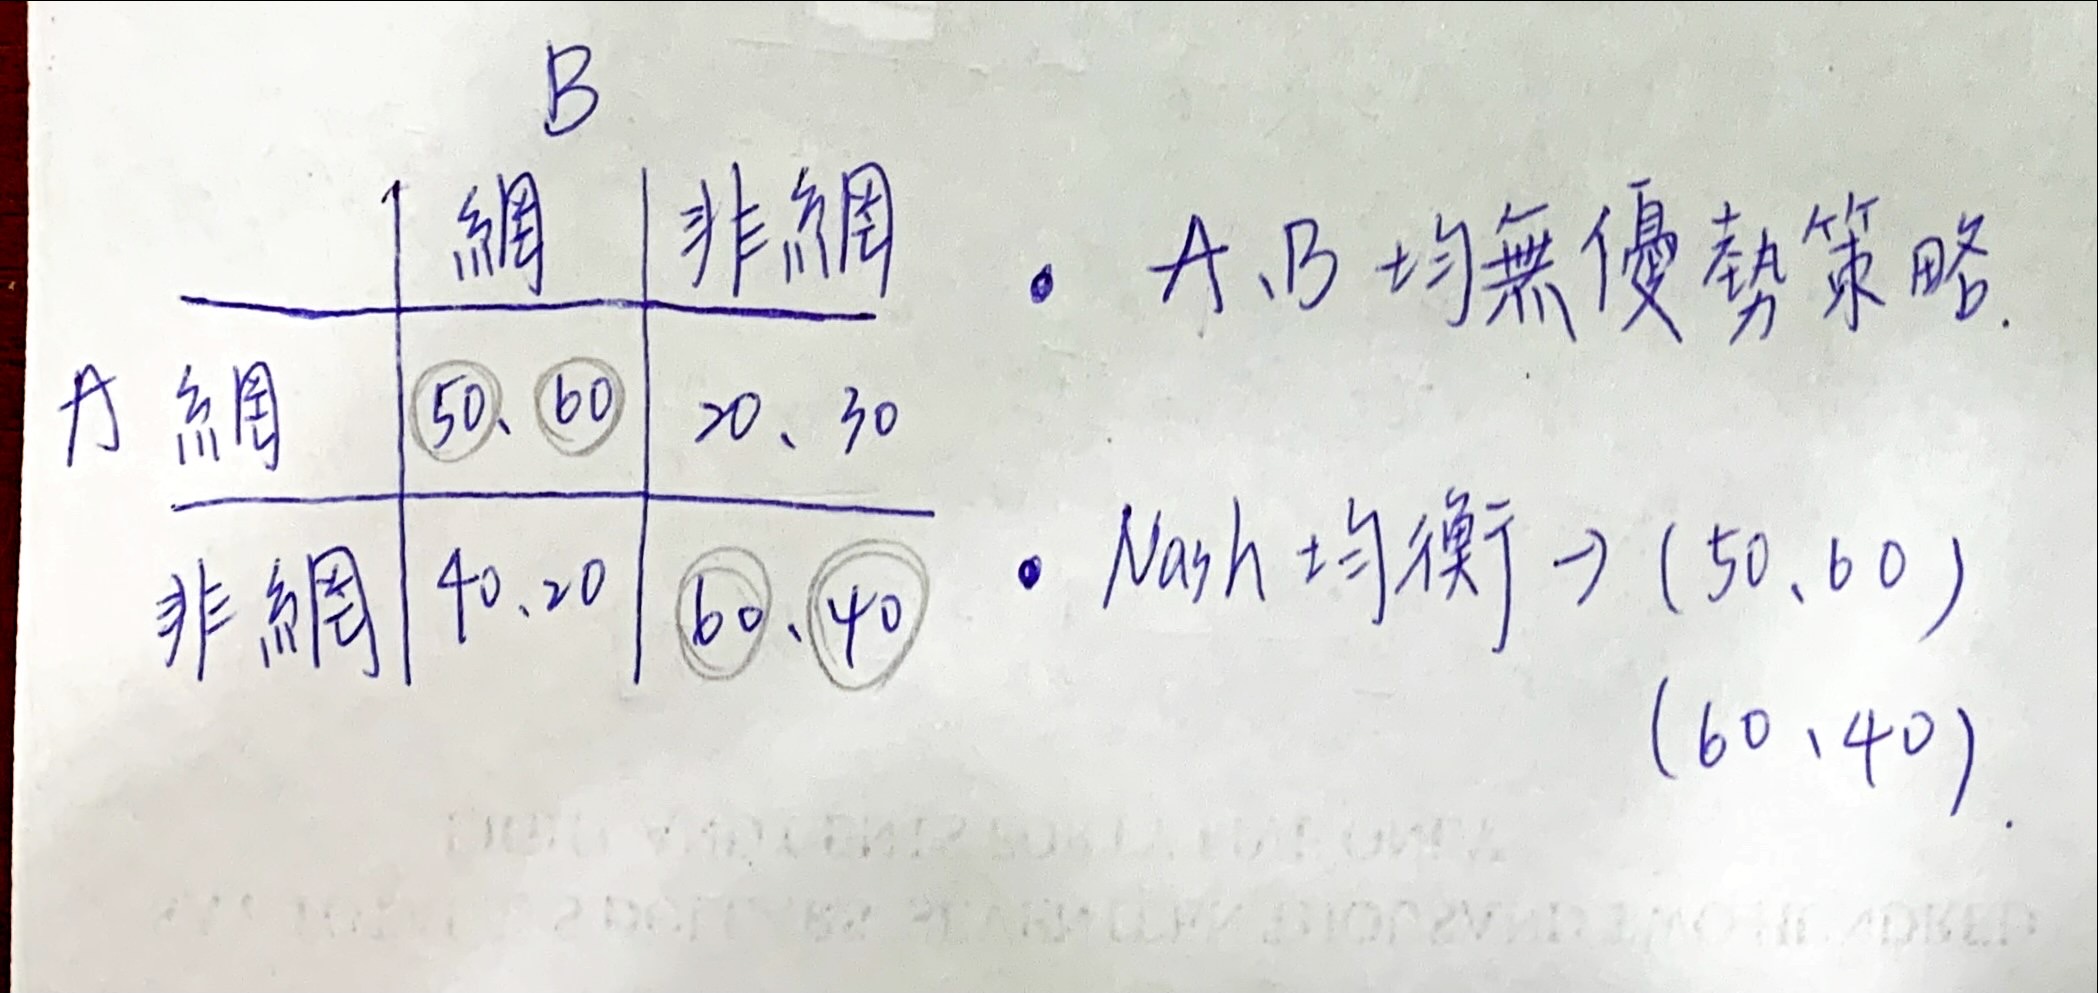 B
網 非網
A 網 50、60 20、30
非網 40、20 60、40
• A、B 均無優勢策略.
• Nash 均衡 → (50、60)
(60、40).